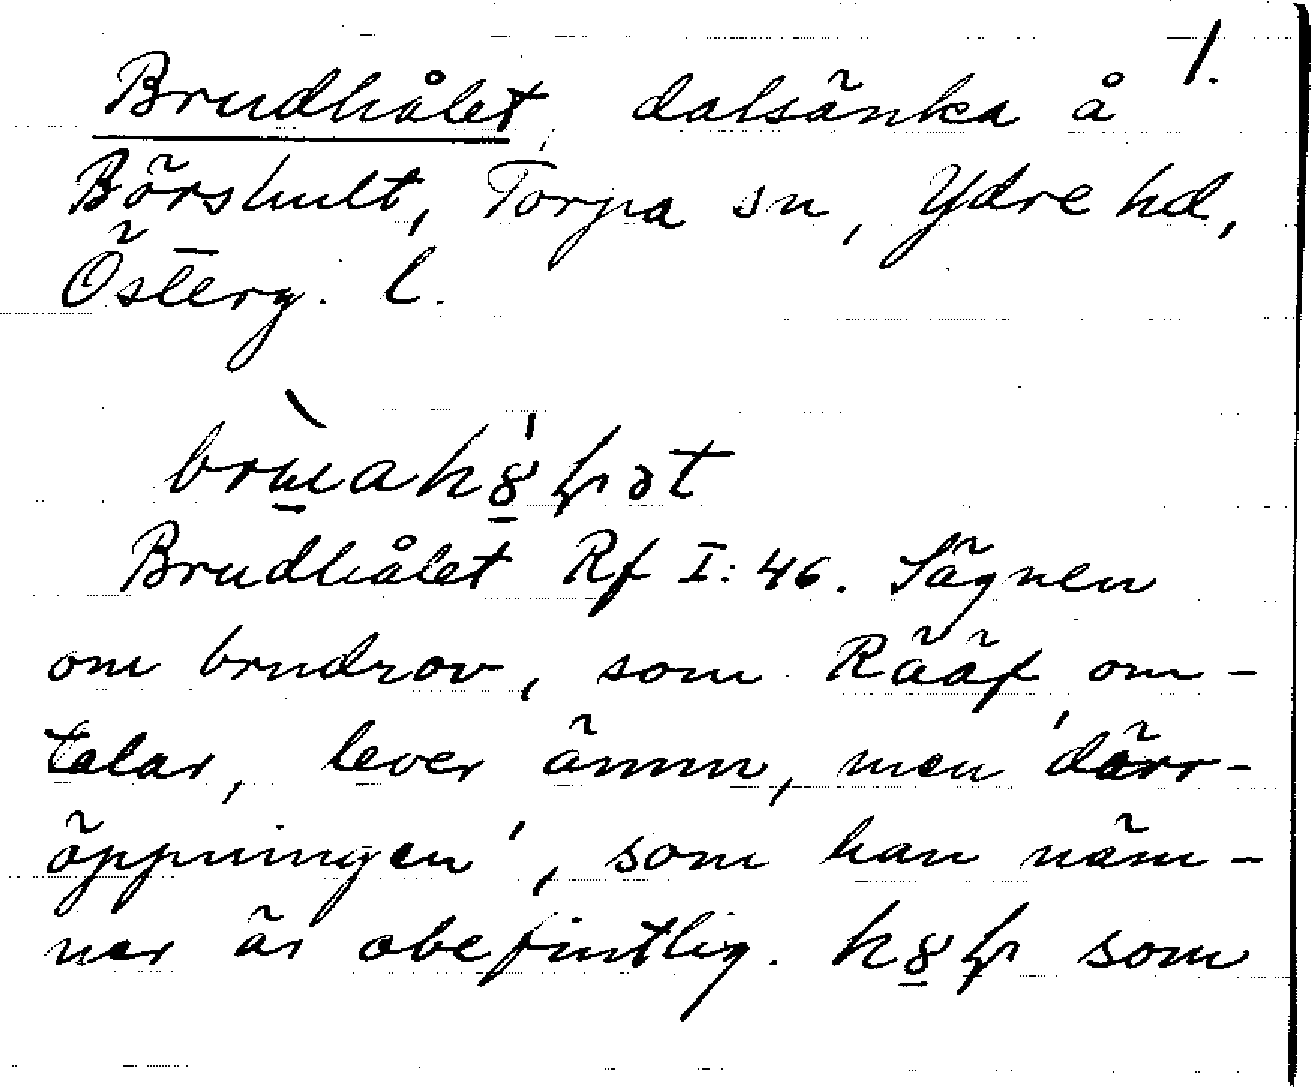 1.
Brudhålet, dalsänka å
Börshult, Torpa sn, Ydre hd,
Österg. l.
Brudhålet Rf I:46. Sägnen
om brudrov, som Rääf om-
talar, lever ännu, men 'dörr-
öppningen', som han näm-
ner är obefintlig. som